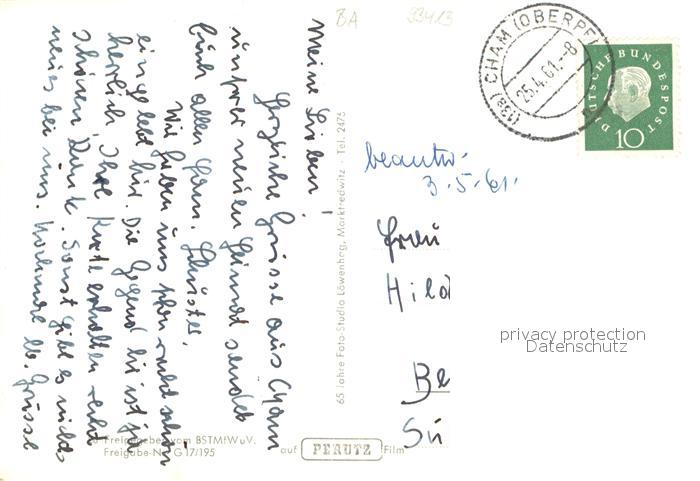 BA
93413
(13a) CHAM (OBERPF)
25.4.61.-8
DEUTSCHE BUNDESPOST
10
Meine Lieben!
Herzliche Grüsse aus Cham
unsrer neuen Heimat sendet
Euch allen Fam.
Wir haben uns schon recht schön
eingelebt hier. Die Gegend hier ist ja
herrlich. Ihre Karte erhalten recht
schönen Dank. Sonst gibt es nichts
neues bei uns. Nochmals lb. Grüsse
65 Jahre Foto-Studio Löwenhag, Marktredwitz - Tel. 2475
beantw.
3.5.61.
Frau
Hild
Be
Su
privacy protection
Datenschutz
Freigegeben vom BSTMfWuV.
Freigabe-Nr. G17/195
auf PERUTZ Film